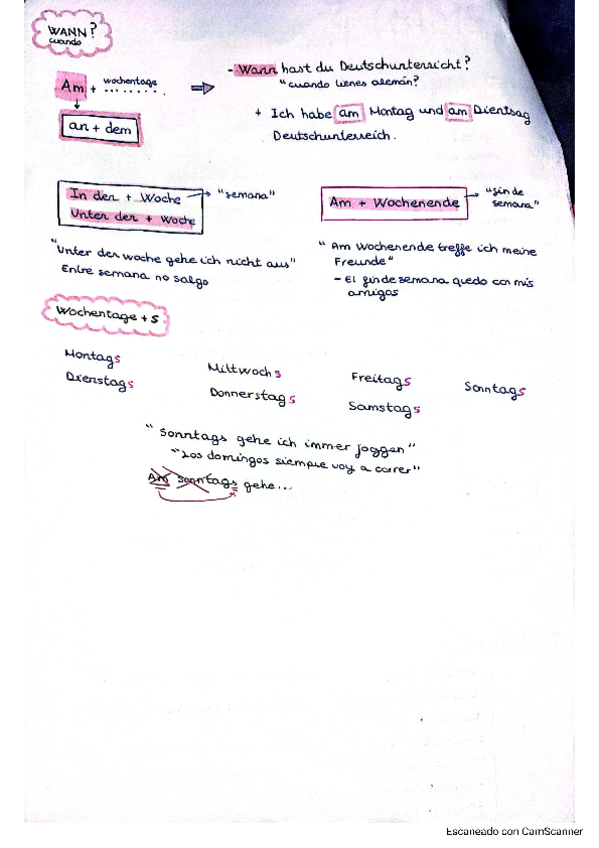 WANN?
cuando
Am + wochentage
........
⇒
- Wann hast du Deutschunterricht?
"cuando tienes alemán?
an + dem
+ Ich habe am Montag und am Dientsag
Deutschunterreich.
In der + Woche → "semana"
Unter der + Woche
Am + Wochenende → "fin de
semana"
"Unter der woche gehe ich nicht aus"
Entre semana no salgo
" Am Wochenende treffe ich meine
Freunde"
- El fin de semana quedo con mis
amigos
Wochentage + s
Montags
Dienstags
Mittwochs
Donnerstags
Freitags
Samstags
Sonntags
" Sonntags gehe ich immer joggen"
"Los domingos siempre voy a correr"
Am sonntags gehe...
Escaneado con CamScanner